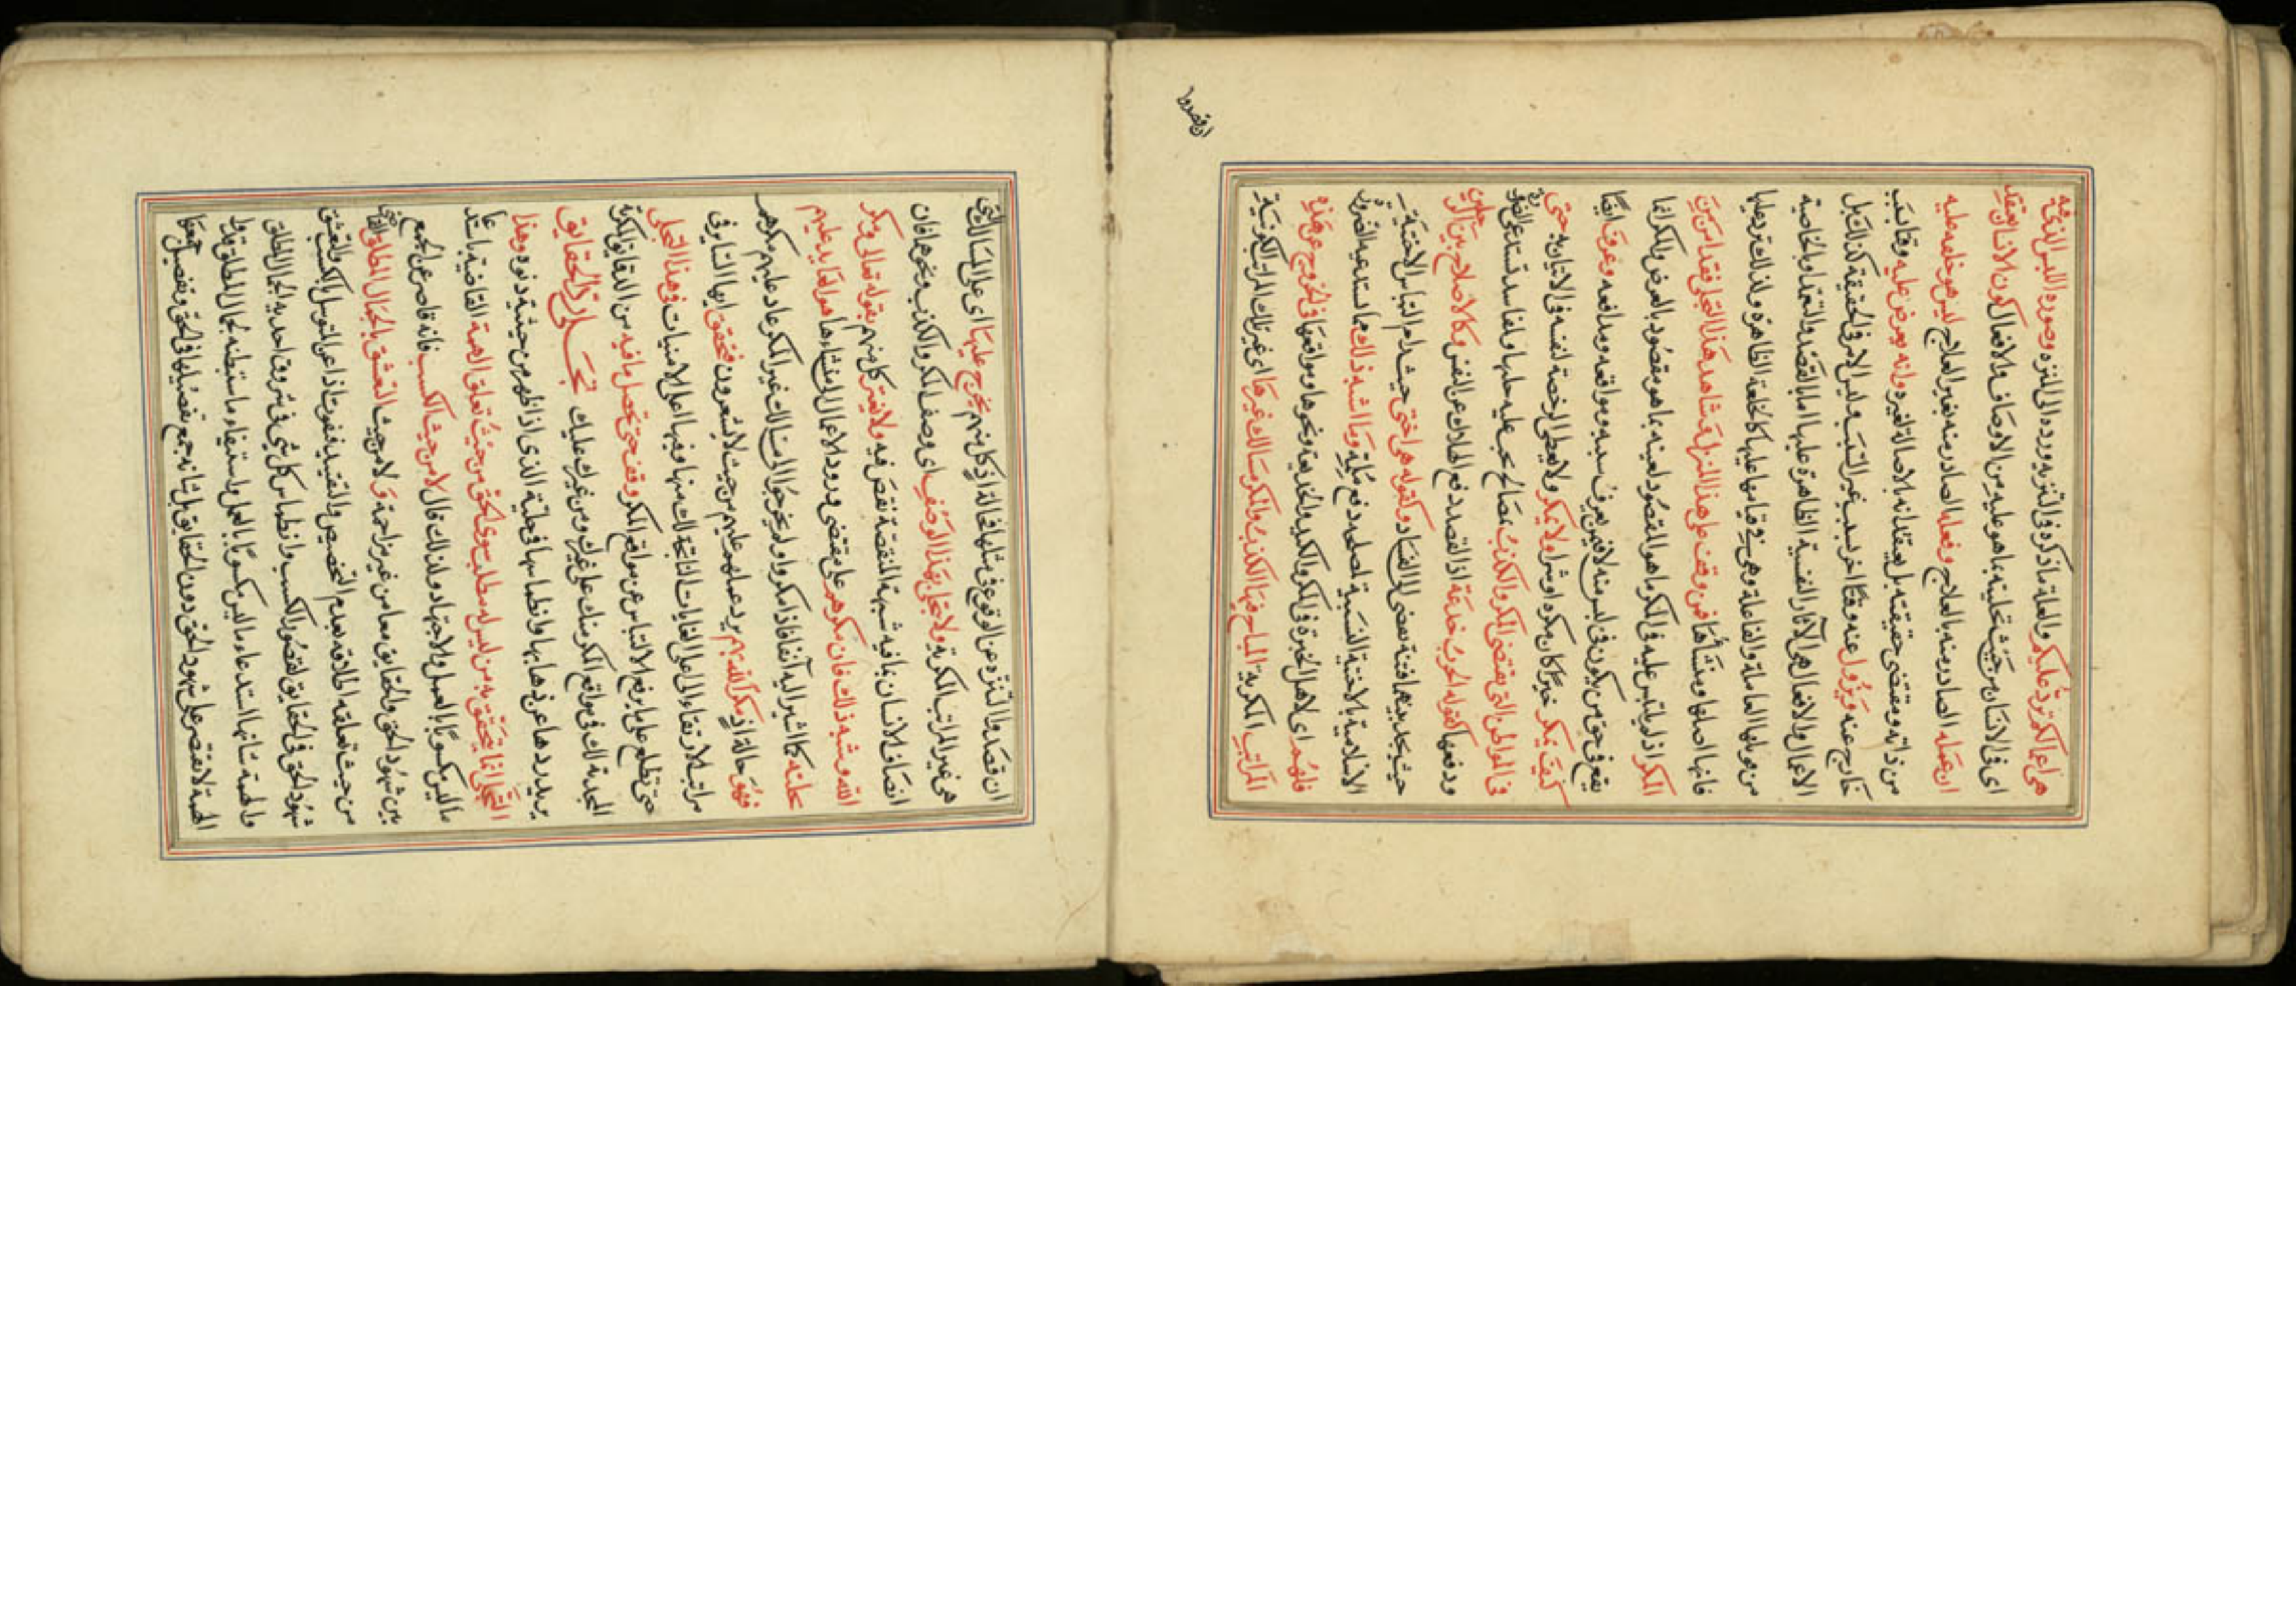 هي اعمالكم ترد عليكم والعلة ما ذكره في التنزيه ورده الى المنزه وصورة اللبس الناشئة
اى فى الانسان من حيث تحليته بما هو عليه من الاوصاف والافعال كون الانسان يعتقد
ان عمله الصادر منه بالعلاج وفعله الصادر منه بغير العلاج ليس هو خلعه عليه
من ذاته ومقتضى حقيقته بل يعتقد انه بالاصالة لغيره وانه يعرض عليه وقتا لسبب
خارج عنه ويزول عنه وقتا اخر بسبب غير السبب وليس الامر فى الحقيقة كذلك بل
الاعمال والافعال هى الآثار النفسية الظاهرة عليها اما بالقصد والتعمد او بالخاصية
من قواها العاملة والفاعلة وهى فى قيامها عليها كالخلعة الظاهرة ولذلك ترد عليها
فانها اصلها ومنشأها فمن وقف على هذا المنزل وشاهد هذا التجلى فقد امن من
المكر اذ لم يلتبس عليه فى المكر ما هو المقصود لعينه بما هو مقصود بالعرض والمكر انما
يقع فى حق من يكون فى لبس منه لا فيمن يعرف سببه ومواقعه ومدافعه وعرف ايضًا
كيف يمكر خيرًا كان مكره او شرا ولا يمكر ولا يعطى الرخصة لنفسه فى الاتيان به حتى
فى المواطن التى يقتضى المكر والكذب بمصالح يجب عليه جلبها ولمفاسد تستدعى الضرورة
ودفعها كقوله الحرب خدعة اذ القصد دفع الهلاك عن النفس وكالاصلاح بين الرجلين
حيث يجد بينهما فتنة يفضى الى الفساد وكقوله هى اختى حيث رام التباس الاختية
الاسلامية بالاختية النسبية لمصلحة دفع ملمة وما اشبه ذلك مما يستدعيه الضرورة
فللهمم اى لاهل الخبرة فى المكر والكيد والخديعة ونحوها ومواقعها فى الخروج عن هذه
المراتب المكرية المباح فيها الكذب والمكر مسالك غيرها اى غير تلك المراتب المكرية
ان قصدوا
ان قصدوا التنزه عن الوقوع فى مثلها فالله اذ كل منهم يخرج عليها اى على المسالك التى
هى غير المراتب المكرية ولا يتجلى بهذا الوصف اى وصف المكر والكذب ونحوهما فان
اتصاف الانسان بما فيه شبهة المنقصة نقص فيه ولا يغتر كل منهم بقوله تعالى ومكر
الله وشبه ذلك فان مكرهم على مقتضى ورود الاعمال الى منشاءها هو العايد عليهم
كما اشير اليه آنفا فاذا مكروا ولم يخرجوا الى مسالك غير المكر عاد عليهم مكرهم
فهو حالة اذ مكر الله بهم يرد عملهم عليهم من حيث لا يشعرون فتحقق ايها السائر فى
مراتب الارتقاء الى اعلى الغايات الناتجة لك منها وفيها اعلى الامنيات فى هذا التجلى
حتى تطلع على ما يرفع الالتباس عن مواقع المكر وقف حتى تحصل ما فيه من الدقائق المكرية
المجدية لك فى مواقع المكر منك على غيرك ومن غيرك عليك تجلى رد الحقايق
يريد ردها عن ذهابها وانطماسها فى حلية الذى اذا ظهر من حيثية دنوه وهذا
التجلى انما يتحقق به من ليس له مطلب سوى الحق من حيث تعلق الهمة القاضية باستدعاء
ما ليس مكسوبًا بالعمل والاجتهاد ولذلك قال لا من حيث الكسب فانه قاصر عن الجمع
بين شهود الحق والحقايق معا من غير مزاحمة ولا من حيث التعشق بالجمال المطلق القاضى
من حيث تعلقه اطلاقه بعدم التخصيص والتقييد
شهود الحق فى الحقايق لقصور الكسب وانطماس كل شى فى شروق احدية الجمال المطلق
والهمة شانها استدعاء ما ليس مكسوبًا بالعمل واستيفاء ما استبطنه جمال المطلق
الهمة لا تقتصر على شهود الحق دون الحقايق بل شانه جمع تفصيلها فى الحق وتفصيل جمعها